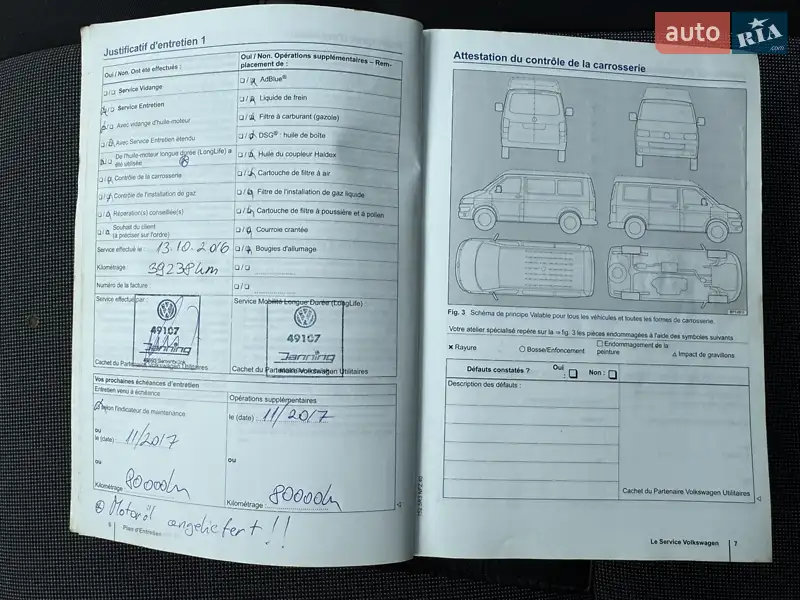 auto RIA .com
Justificatif d'entretien 1
Oui / Non. Ont été effectués :
Service Vidange
Service Entretien
Avec vidange d'huile-moteur
Avec Service Entretien étendu
De l'huile-moteur longue durée (LongLife) a
été utilisée
Contrôle de la carrosserie
Contrôle de l'installation de gaz
Réparation(s) conseillée(s)
Souhait du client
(à préciser sur l'ordre)
Service effectué le 13.10.2016
Kilométrage : 39238km
Numéro de la facture :
Oui / Non. Opérations supplémentaires – Rem-
placement de :
AdBlue®
Liquide de frein
Filtre à carburant (gazole)
DSG® : huile de boîte
Huile du coupleur Haldex
Cartouche de filtre à air
Filtre de l'installation de gaz liquide
Cartouche de filtre à poussière et à pollen
Courroie crantée
Bougies d'allumage
Service effectué par
49107
Janning
Cachet du Partenaire Volkswagen Utilitaires
Service Mobilité Longue Durée (LongLife) :
49107
Janning
Cachet du Partenaire Volkswagen Utilitaires
Vos prochaines échéances d'entretien
Entretien venu à échéance
Selon l'indicateur de maintenance
ou
le (date) 11/2017
ou
Kilométrage 80000km
Opérations supplémentaires
le (date) 11/2017
ou
Kilométrage 80000km
Motoröl angeliefert!!
6 Plan d'Entretien
Attestation du contrôle de la carrosserie
Fig. 3 Schéma de principe Valable pour tous les véhicules et toutes les formes de carrosserie.
Votre atelier spécialisé repère sur la ⇒ fig. 3 les pièces endommagées à l'aide des symboles suivants
× Rayure
○ Bosse/Enfoncement
□ Endommagement de la
peinture
△ Impact de gravillons
Défauts constatés ?
Oui
:
Non :
Description des défauts :
Cachet du Partenaire Volkswagen Utilitaires
Le Service Volkswagen 7